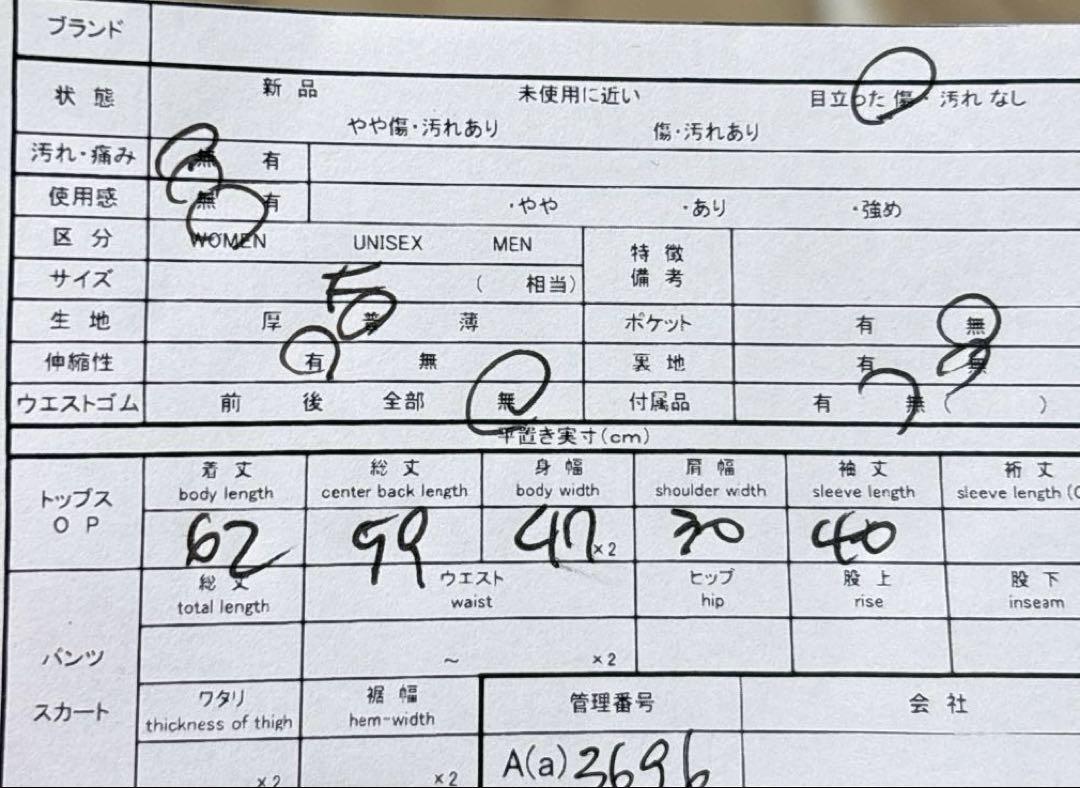 ブランド
状態 新品 未使用に近い 目立った傷・汚れなし
やや傷・汚れあり 傷・汚れあり
汚れ・痛み 無 有
使用感 無 有 ・やや ・あり ・強め
区分 WOMEN UNISEX MEN 特徴
備考
サイズ ( 相当)
生地 厚 普 薄 ポケット 有 無
伸縮性 有 無 裏地 有 無
ウエストゴム 前 後 全部 無 付属品 有 無 ( )
平置き実寸(cm)
トップス
OP
着丈 総丈 身幅 肩幅 袖丈 裄丈
body length center back length body width shoulder width sleeve length sleeve length(C
62 99 47 ×2 30 40
総丈 ウエスト ヒップ 股上 股下
total length waist hip rise inseam
パンツ ~ ×2
スカート
ワタリ 裾幅 管理番号 会社
thickness of thigh hem-width
×2 ×2 A(a) 3696